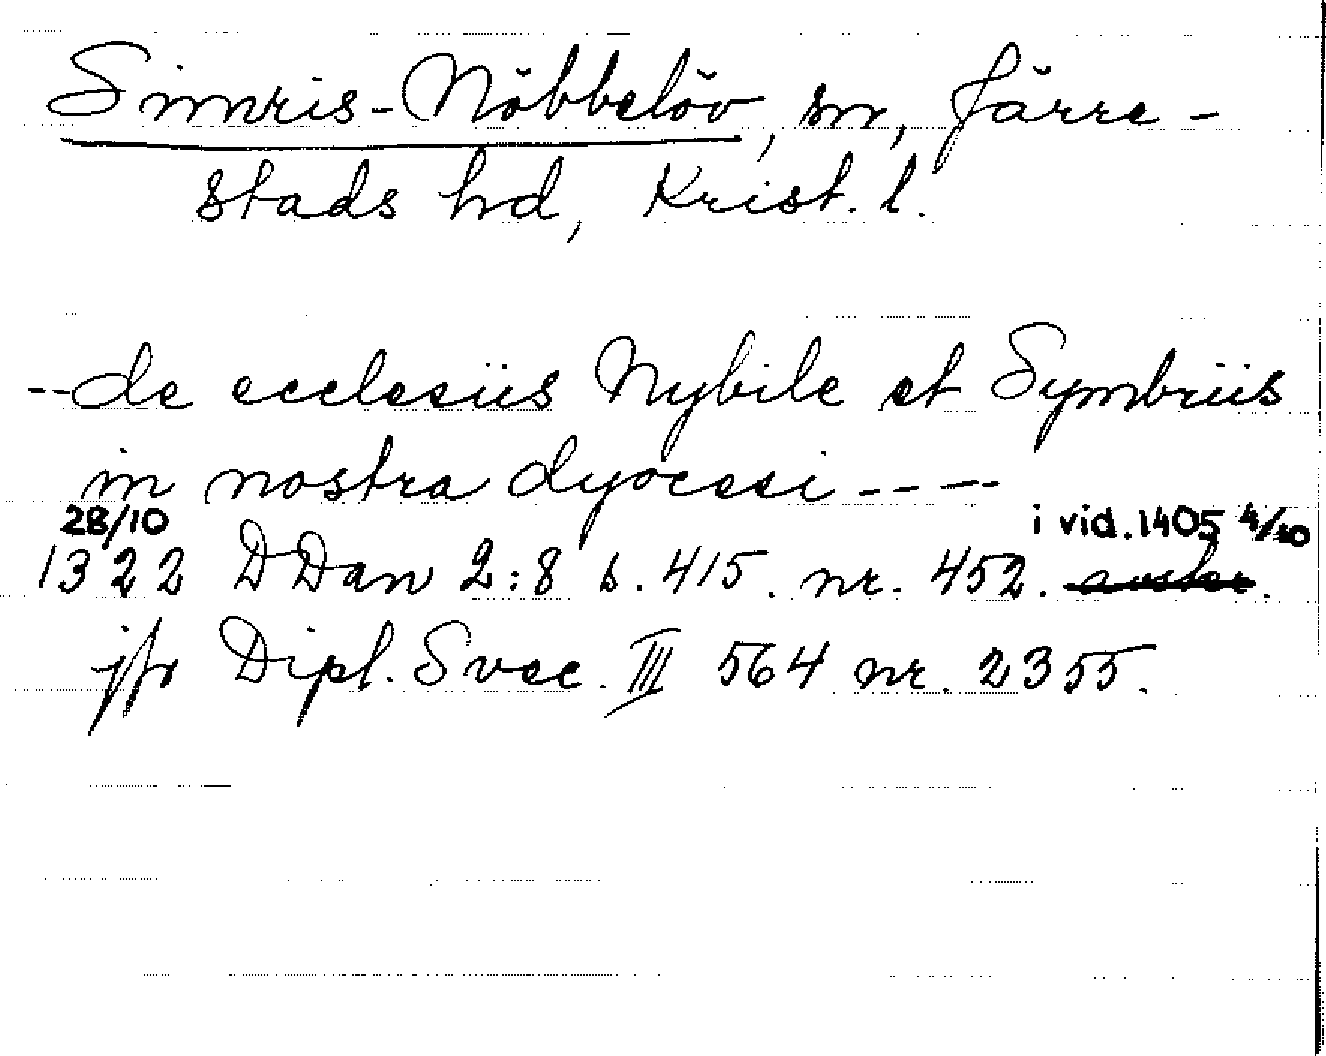 Simris-Nöbbelöv, sn, Järre-
stads hd, Krist. l.
--de ecclesiis Nybile et Symbriis
in nostra dyocesi ----
28/10 i vid. 1405 4/10
1322 DDan 2:8 s. 415. nr. 452.
jfr Dipl. Svec. III 564 nr. 2355.